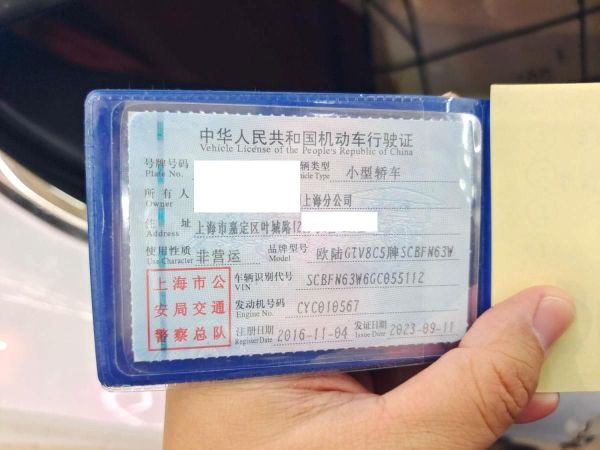 中华人民共和国机动车行驶证
Vehicle License of the People's Republic of China
号牌号码 车辆类型 小型轿车
Plate No. Vehicle Type
所有人 上海分公司
Owner
住址 上海市嘉定区叶城路
Address
使用性质 非营运 品牌型号 欧陆GTV8C5牌SCBFN63W
Use Character Model
上海市公安局交通警察总队
车辆识别代号 SCBFN63W6GC055112
VIN
发动机号码 CYC010567
Engine No.
注册日期 2016-11-04 发证日期 2023-09-11
Register Date Issue Date